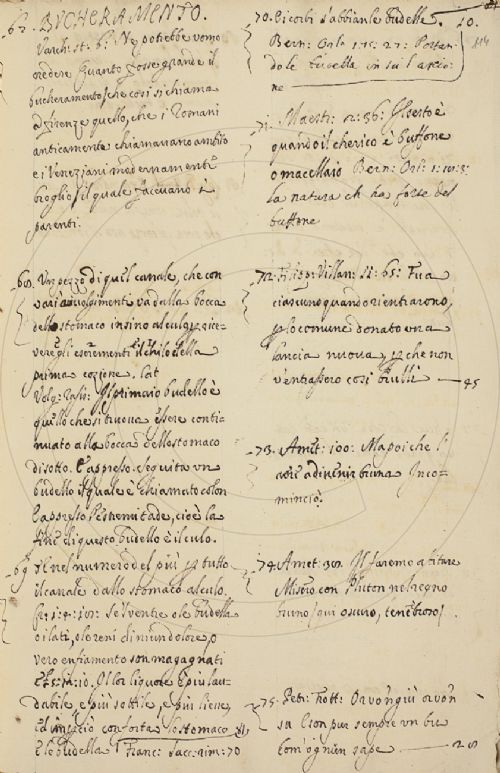 67. BVCHERAMENTO.
Varch: st: 6: Ne potrebbe uomo
credere quanto fosse grande il
bucheramento, che così si chiama
a firenze quello, che i Romani
anticamente chiamavano ambito
e i Veneziani modernamente
broglio, il quale facevano i
parenti.
68. Un pezzo di quel canale, che con
varij avvolgimenti va dalla bocca
dello stomaco insino al culo, p rice-
vere gli escrementi il chilo della
prima cozione. lat
Volg: Rasis: Il primaio budello è
quello che si truova essere conti-
nuato alla bocca dello stomaco
di sotto. E appresso seguita un
budello il quale è chiamato colon
E appresso l'estremitade, cioè la
fine di questo budello è il culo.
69 nel numero del più p tutto
il canale dallo stomaco al culo.
Se'l ventre o le budella
o i lati, o le reni di niun dolore, o
vero enfiamento son magagnati
Il lor liquore è più lau-
dabile, e più sottile, e più liene,
conforta lo stomaco
e le budella Franc: Sacc: rim: 70
70. E i corbi s'abbian le budella. 20.
114
Bern: Orl: 1: 15: 27: Portan-
do le budella in su l'arcio-
ne
71. Maestr: 2: 36:
quando il cherico è buffone
o macellaio Bern: Orl:
La natura ch ha forse del
buffone
72. Filip: Villan: 11: 65: Fu a
ciascuno quando rientrarono,
p lo comune donato una
lancia nuova, p che non
v'entrassero così brulli 45
73. Amet: 100: Ma poi che l'
aere a divenir bruna Inco-
minciò.
74. Amet: Il faremo a
Misero con Pluton nel regno
bruno / qui oscuro, tenebroso /.
75. Petr: Frott: Or vo'n giù or vo'n
su Cson pur sempre un bu
E om'ognun sape 28